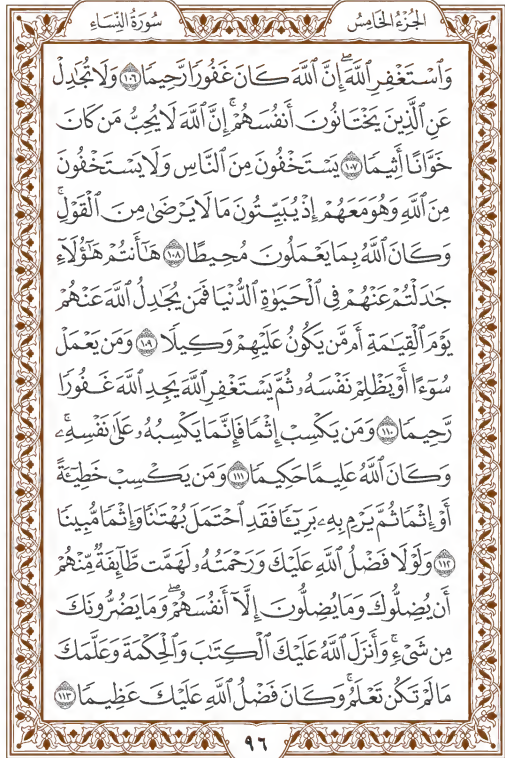 الجزء الخامس
سورة النساء
وَٱسْتَغْفِرِ ٱللَّهَۖ إِنَّ ٱللَّهَ كَانَ غَفُورًا رَّحِيمًا ١٠٦ وَلَا تُجَٰدِلْ
عَنِ ٱلَّذِينَ يَخْتَانُونَ أَنفُسَهُمْۚ إِنَّ ٱللَّهَ لَا يُحِبُّ مَن كَانَ
خَوَّانًا أَثِيمًا ١٠٧ يَسْتَخْفُونَ مِنَ ٱلنَّاسِ وَلَا يَسْتَخْفُونَ
مِنَ ٱللَّهِ وَهُوَ مَعَهُمْ إِذْ يُبَيِّتُونَ مَا لَا يَرْضَىٰ مِنَ ٱلْقَوْلِۚ
وَكَانَ ٱللَّهُ بِمَا يَعْمَلُونَ مُحِيطًا ١٠٨ هَٰٓأَنتُمْ هَٰٓؤُلَآءِ
جَٰدَلْتُمْ عَنْهُمْ فِى ٱلْحَيَوٰةِ ٱلدُّنْيَا فَمَن يُجَٰدِلُ ٱللَّهَ عَنْهُمْ
يَوْمَ ٱلْقِيَٰمَةِ أَم مَّن يَكُونُ عَلَيْهِمْ وَكِيلًا ١٠٩ وَمَن يَعْمَلْ
سُوٓءًا أَوْ يَظْلِمْ نَفْسَهُۥ ثُمَّ يَسْتَغْفِرِ ٱللَّهَ يَجِدِ ٱللَّهَ غَفُورًا
رَّحِيمًا ١١٠ وَمَن يَكْسِبْ إِثْمًا فَإِنَّمَا يَكْسِبُهُۥ عَلَىٰ نَفْسِهِۦۚ
وَكَانَ ٱللَّهُ عَلِيمًا حَكِيمًا ١١١ وَمَن يَكْسِبْ خَطِيٓـَٔةً
أَوْ إِثْمًا ثُمَّ يَرْمِ بِهِۦ بَرِيٓـًٔا فَقَدِ ٱحْتَمَلَ بُهْتَٰنًا وَإِثْمًا مُّبِينًا
١١٢ وَلَوْلَا فَضْلُ ٱللَّهِ عَلَيْكَ وَرَحْمَتُهُۥ لَهَمَّت طَّآئِفَةٌ مِّنْهُمْ
أَن يُضِلُّوكَ وَمَا يُضِلُّونَ إِلَّآ أَنفُسَهُمْۖ وَمَا يَضُرُّونَكَ
مِن شَىْءٍۚ وَأَنزَلَ ٱللَّهُ عَلَيْكَ ٱلْكِتَٰبَ وَٱلْحِكْمَةَ وَعَلَّمَكَ
مَا لَمْ تَكُن تَعْلَمُۚ وَكَانَ فَضْلُ ٱللَّهِ عَلَيْكَ عَظِيمًا ١١٣
٩٦